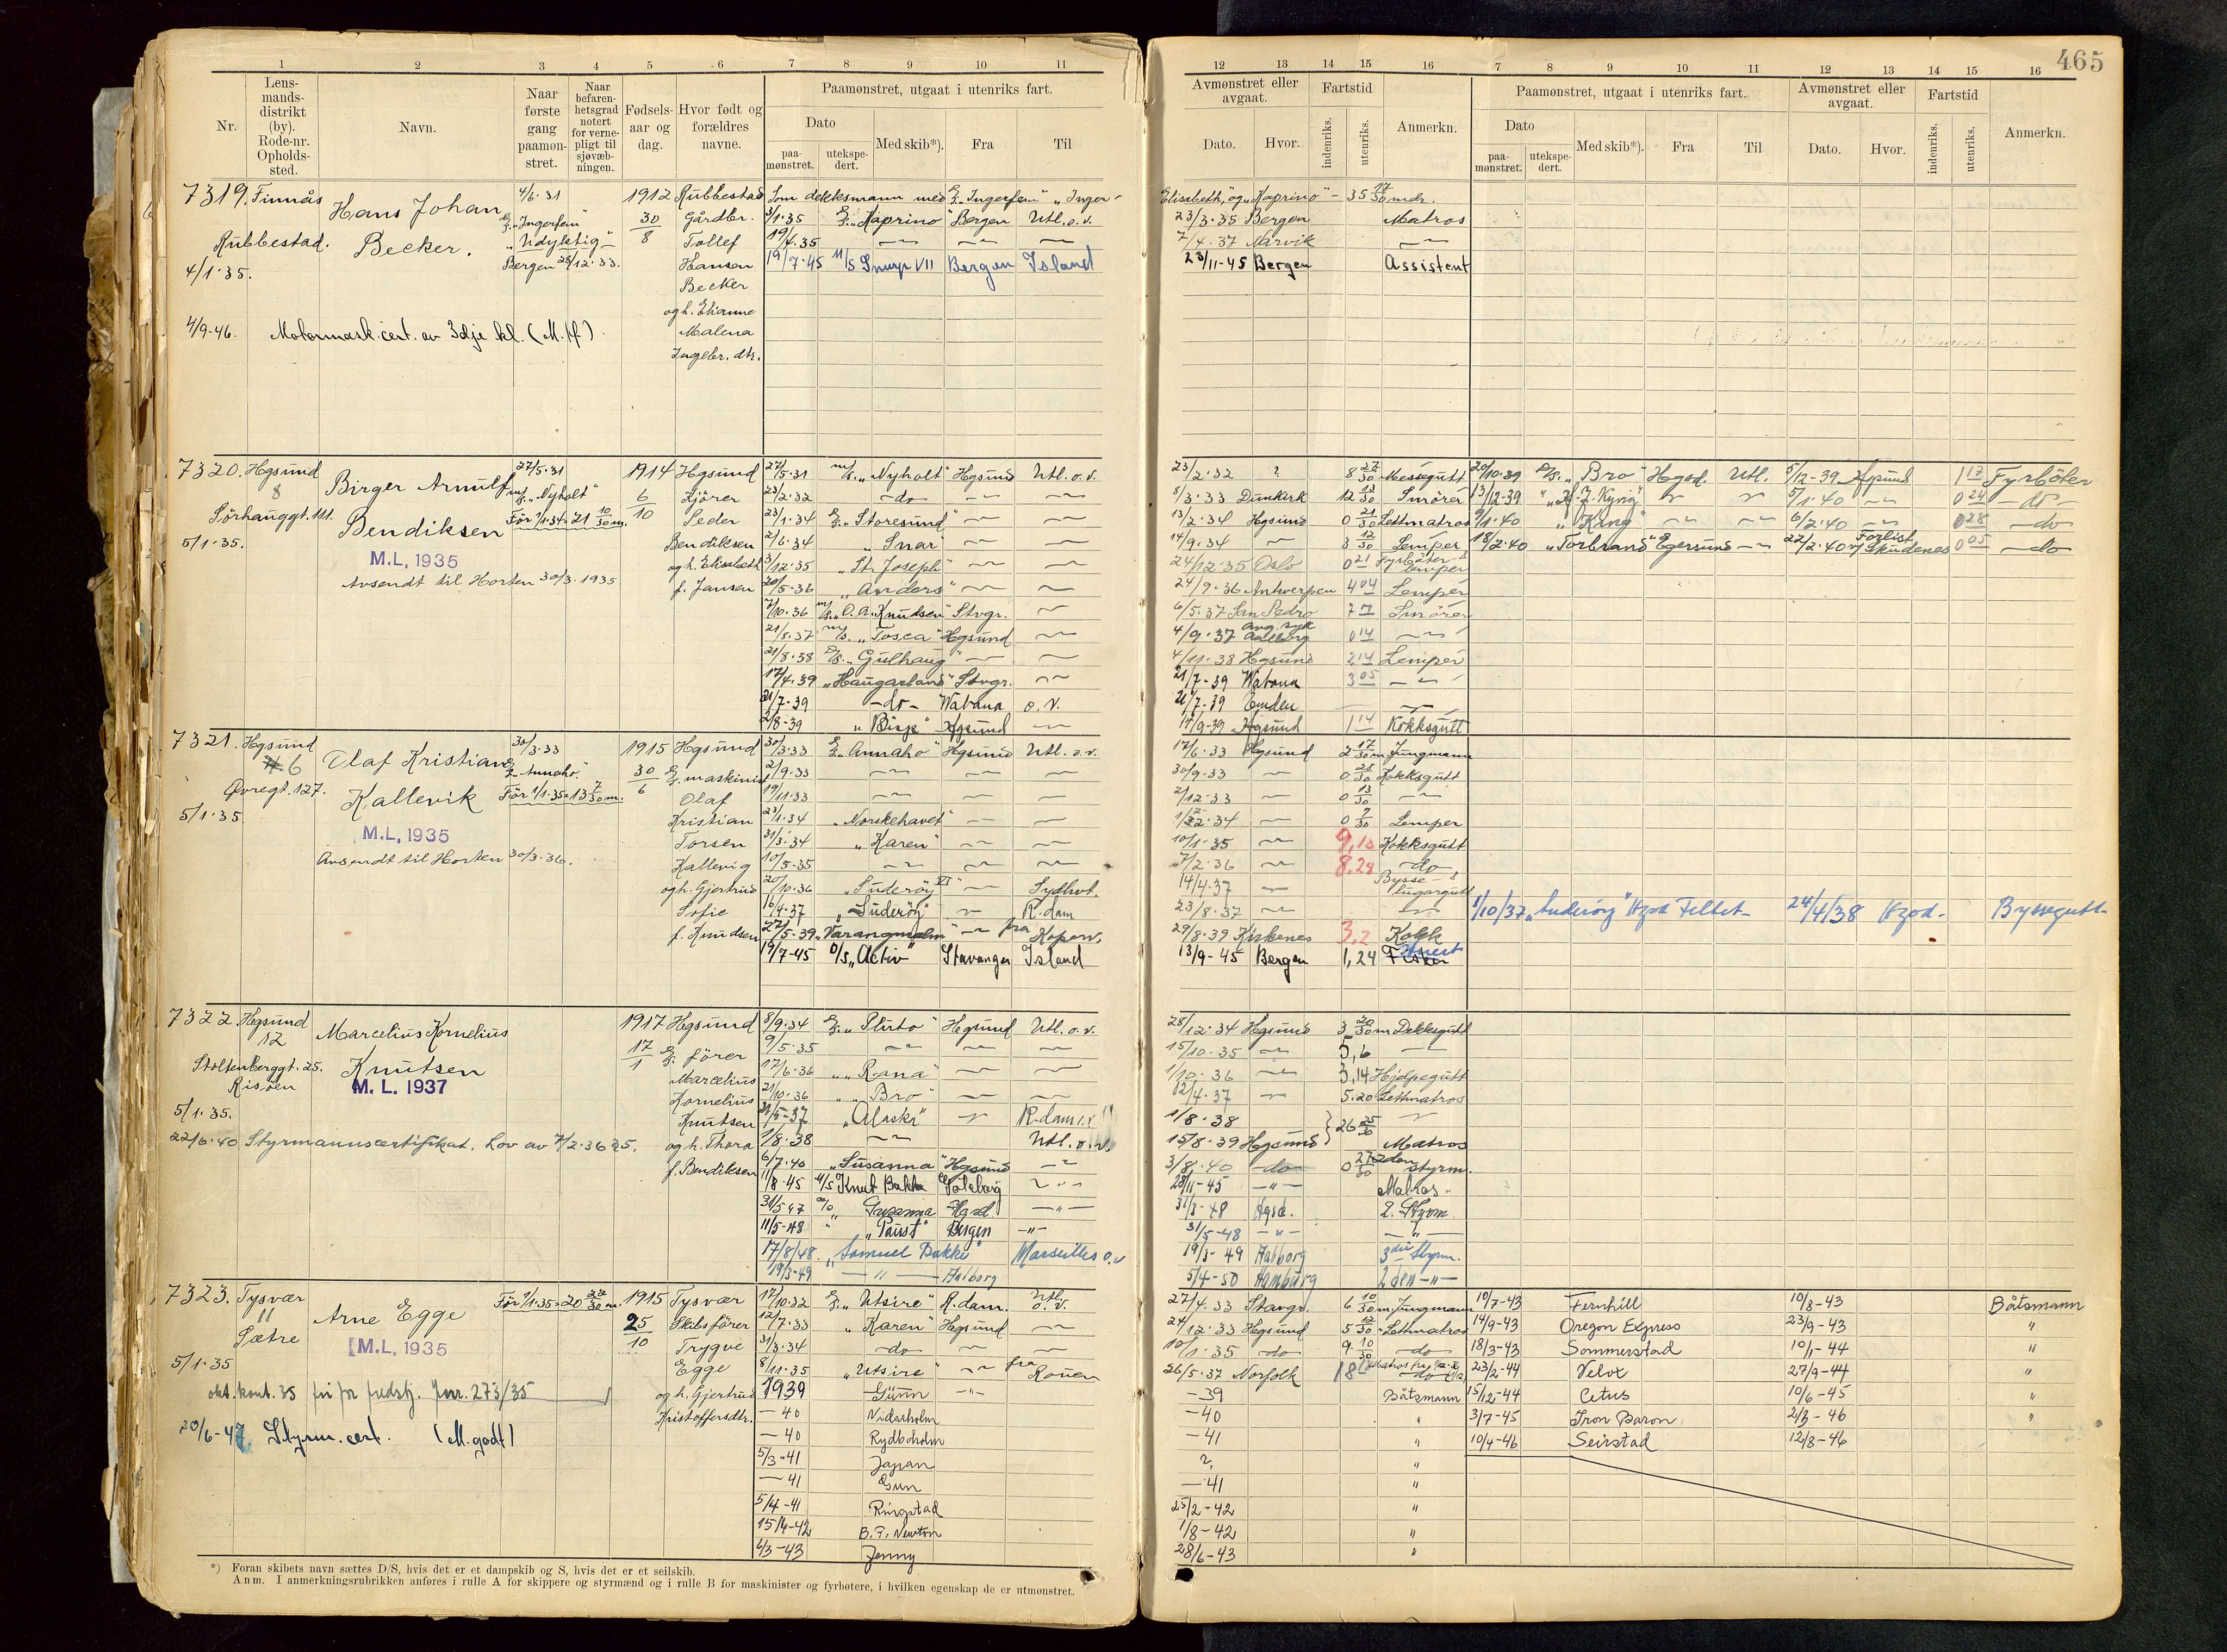 465
1 2 3 4 5 6 7 8 9 10 11
12 13 14 15 16 7 8 9 10 11 12 13 14 15 16
Nr.
Lens-
mands-
distrikt
(by).
Rode-nr.
Opholds-
sted.
Navn.
Naar
første
gang
paamøn-
stret.
Naar
befaren-
hetsgrad
notert
for verne-
pligt til
sjøvæb-
ningen.
Fødsels-
aar og
dag.
Hvor født og
forældres
navne.
Paamønstret, utgaat i utenriks fart.
Dato
paa-
mønstret.
utekspe-
dert.
Med skib*).
Fra
Til
Avmønstret eller
avgaat.
Dato.
Hvor.
Fartstid
indenriks.
utenriks.
Anmerkn.
Paamønstret, utgaat i utenriks fart.
Dato
paa-
mønstret.
utekspe-
dert.
Med skib*).
Fra
Til
Avmønstret eller
avgaat.
Dato.
Hvor.
Fartstid
indenriks.
utenriks.
Anmerkn.
7319. Finnås
Rubbestad.
4/1.35.
Hans Johan
Becker.
4/6.31
"Ingerfem"
"Udyktig"
Bergen 28/12.33.
1912
30
8
Rubbestad
Gårdbr.
Tollef
Hansen
Becker
og h. Elianne
Malena
Ingebr. dtr.
4/9-46. Motormask.cert. av 3dje kl. (M./f)
Som dekksmann med "Ingerfem" "Inger-
Elisabeth," og "Kaprino" - 35 17/30 mdr.
3/1.35 "Kaprino" Bergen Utl. o. v. 23/3.35 Bergen Matros
19/4.35 7/4.37 Narvik
19/7-45 M/S Snurp VII Bergen Island 23/11-45 Bergen Assistent
7320. Hgsund
8
Sörhauggt. 111.
5/1.35.
Birger Arnulf
Bendiksen
M.L, 1935
Avsendt til Horten 30/3.1935
27/5.31
m/s. "Nyholt"
För 1/1.34=21 10/30 m.
1914
6
10
Hgsund
Kjörer
Peder
Bendiksen
og h. Elisabeth
f. Jansen
27/5.31 m/s. "Nyholt" Hgsund Utl. o. v. 23/2.32 ? 8 27/30 Messegutt 20/10.39 D/s. "Bro" Hgsd. Utl. 5/12-39 Hgsund 1 17 Fyrböter
23/2.32 -do- 5/3.33 Dunkirk 12 13/30 Smörer 13/12-39 5/1.40 0 24 -do-
23/1.34 "Storesund" 13/2.34 Hgsund 0 21/30 Lettmatros 9/1.40 "Kang" 6/2.40 0 28 -do
2/6.34 "Snar" 14/9.34 3 12/30 Lemper 18/2.40 "Torbrand" Egersund 22/2.40 Forlist v/ Skudenes 0 05 -do
3/12.35 "St. Joseph" 24/12.35 Oslo 0 21 Fyrböter & Lemper
20/5-36 "Anders" 24/9.36 Antwerpen 4 04 Lemper
7/10.36 m/s. "O. A. Knudsen" Stvgr. 6/5.37 San Pedro 7 Smörer
21/8.37 m/s. "Tosca" Hgsund 4/9.37 avg. syk Aalborg 0 14
21/8.38 D/s. "Gulhaug" 4/11.38 Hgsund 2 14 Lemper
17/4.39 "Haugarland" Stvgr. 21/7-39 Wabana 3 05
21/7-39 -do- Wabana o. v. 21/7-39 Emden
2/8-39 "Bisp" Hgsund 17/9-39 Hgsund 1 14 Kokksgutt
7321. Hgsund
6
Övregt. 127.
5/1.35.
Olaf Kristian
Kallevik
M.L, 1935
Avsendt til Horten 30/3.36.
30/3.33
"Annaho."
För 1/1.35=13 7/30 m.
1915
30
6
Hgsund
maskinist
Olaf
Kristian
Torsen
Kallevig
og h. Gjertrud
Sofie
f. Knudsen
30/3.33 "Annaho" Hgsund Utl. o. v. 17/6.33 Hgsund 2 17/30 m Jungmann
2/9.33 30/9.33 0 28/30 Kokksgutt
19/11.33 2/12.33 0 13/30
23/1.34 "Norskehavet" 0 9/30 Lemper
31/3.34 "Karen" 10/1.35 9,10 Kokksgutt
10/5-35 7/2.36 8,29 -do
20/10.36 "Suderöy VI" Sydhvt. 14/4.37 Bysse- & lugargutt
16/4-37 "Suderöy" R.dam 23/8.37 1/10/37 "Suderöy" Hgsd Feltet 24/4/38 Hgsd. Byssegutt
27/5-39 "Varangmalm" fra Koperv. 29/8.39 Kirkenes 3,2 Kokk
19/7-45 D/S "Activ" Stavanger Island 13/9-45 Bergen 1,24
7322. Hgsund
12
Stoltenberggt. 25.
Risöen
5/1.35.
Marcelius Kornelius
Knutsen
M. L. 1937
22/6.40 Styrmannscertifikat. Lov av 7/2.36 § 5.
1917
17
1
Hgsund
förer
Marcelius
Kornelius
Knutsen
og h. Thora
f. Bendiksen
8/9.34 "Pluto" Hgsund Utl. o. v. 28/12.34 Hgsund 3 20/30 m Dekksgutt
9/5.35 15/10.35 5,6
17/6.36 "Rana" 1/10.36 3,14 Hjelpegutt
21/10.36 "Bro" 12/4.37 5.20 Lettmatros
21/5-37 "Alaska" R.dam 1/8.38
1/8.38 Utl. o. v. 15/8.39 Hgsund 26 25/30 Matros
6/7.40 "Susanna" Hgsund 3/8.40 -do- 0 27/30 2den styrm.
11/8.45 M/S Knut Bakke Göteborg 28/11-45 -"- Matros.
31/5 47 Susanna Hgsd -"- 31/3-48 Hgsd. 2. Styrm.
11/5-48 "Paust" Bergen -"- 31/5-48 -"- -"-
17/8/48. "Samuel Bakke" Marseilles o.v 19/3-49 Aalborg 3die Styrm.
19/3-49 -"- Aalborg 5/4-50 Hamburg 2den -"-
7323. Tysvær
11
Sætre
5/1.35
Arne Egge
M.L, 1935
För 1/1.35=20 22/30 m.
1915
25
10
Tysvær
Skibsförer
Trygve
Egge
og h. Gjertrud
Kristoffersdtr.
273/35
20/6-47 Styrm. cert. (M. godt)
17/10.32 "Utsire" R.dam. Utl. o. v. 27/4.33 Stavgr. 6 10/30 m Jungmann 10/7-43 Fernhill 10/8-43 Båtsmann
12/7.33 "Karen" Hgsund 24/12.33 Hgsund 5 12/30 Lettmatros 14/9-43 Oregon Express 23/9-43 "
31/3.34 -do 10/1.35 -do 9. 10/30 -do 18/3-43 Sommerstad 10/1-44 "
8/11.35 "Utsire" fra Rouen 26/5.37 Norfolk 18 23/2-44 Velox 27/9-44 "
1939 Gunn -"- -39 Båtsmann 15/12-44 Cetus 10/6-45 "
-40 Nidarholm -40 " 3/7-45 Iron Baron 2/3-46 "
-40 Rydboholm -41 " 10/4-46 Seirstad 12/8-46
5/3-41 Japan ? "
-41 Gun -41 "
5/4-41 Ringstad 25/2-42 "
15/4-42 B. P. Newton 1/8-42 "
6/3-43 Jenny 28/6-43 "
*) Foran skibets navn sættes D/S, hvis det er et dampskib og S, hvis det er et seilskib.
Anm. I anmerkningsrubrikken anføres i rulle A for skippere og styrmænd og i rulle B for maskinister og fyrbøtere, i hvilken egenskap de er utmønstret.